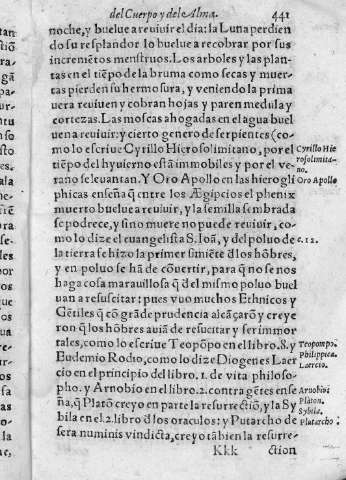 del Cuerpo y del Alma. 441
noche, y buelue a reuiuir el dia: la Luna perdien
do su resplandor lo buelue a recobrar por sus
incremẽtos menstruos. Los arboles y las plan-
tas en el tiẽpo de la bruma como secas y muer-
tas pierden su hermosura, y veniendo la prima
uera reuiuen y cobran hojas y paren medula y
cortezas. Las moscas ahogadas en el agua buel
uen a reuiuir: y cierto genero de serpientes (co-
mo lo escriue Cyrillo Hierosolimitano, por el
tiẽpo del hyuierno està immobiles y por el ve-
rano se leuantan. Y Oro Apollo en las hierogli
phicas enseña q̃ entre los Ægipcios el phenix
muerto buelue a reuiuir, y la semilla sembrada
se podrece, y sino muere no puede reuiuir, co-
mo lo dize el euangelista S. Ioã, y del poluo de
la tierra se hizo la primer simiẽte d̃ los hõbres,
y en poluo se hã de cõuertir, para q̃ no se nos
haga cosa marauillosa q̃ del mismo poluo buel
uan a resuscitar: pues vuo muchos Ethnicos y
Gẽtiles q̃ cõ grãde prudencia alcãçarõ y creye
ron q̃ los hõbres auiã de resucitar y ser immor
tales, como lo escriue Teopõpo en el libro.8. y
Eudemio Rodio, como lo dize Diogenes Laer
cio en el principio del libro.1. de vita philoso-
pho. y Arnobio en el libro.2. contra gẽtes ense
ña, q̃ Platõ creyo en parte la resurrectiõ, y la Sy
bila en el.2. libro d̃ los oraculos: y Putarcho de
sera numinis vindicta, creyo tãbien la resurre-
Kkk ction
Cyrillo Hie
rosolimita-
no.
Oro Apollo
c. 12.
Teopompo.
Philippica.
Laercio.
Arnobio.
Platon.
Sybila.
Plutarcho.